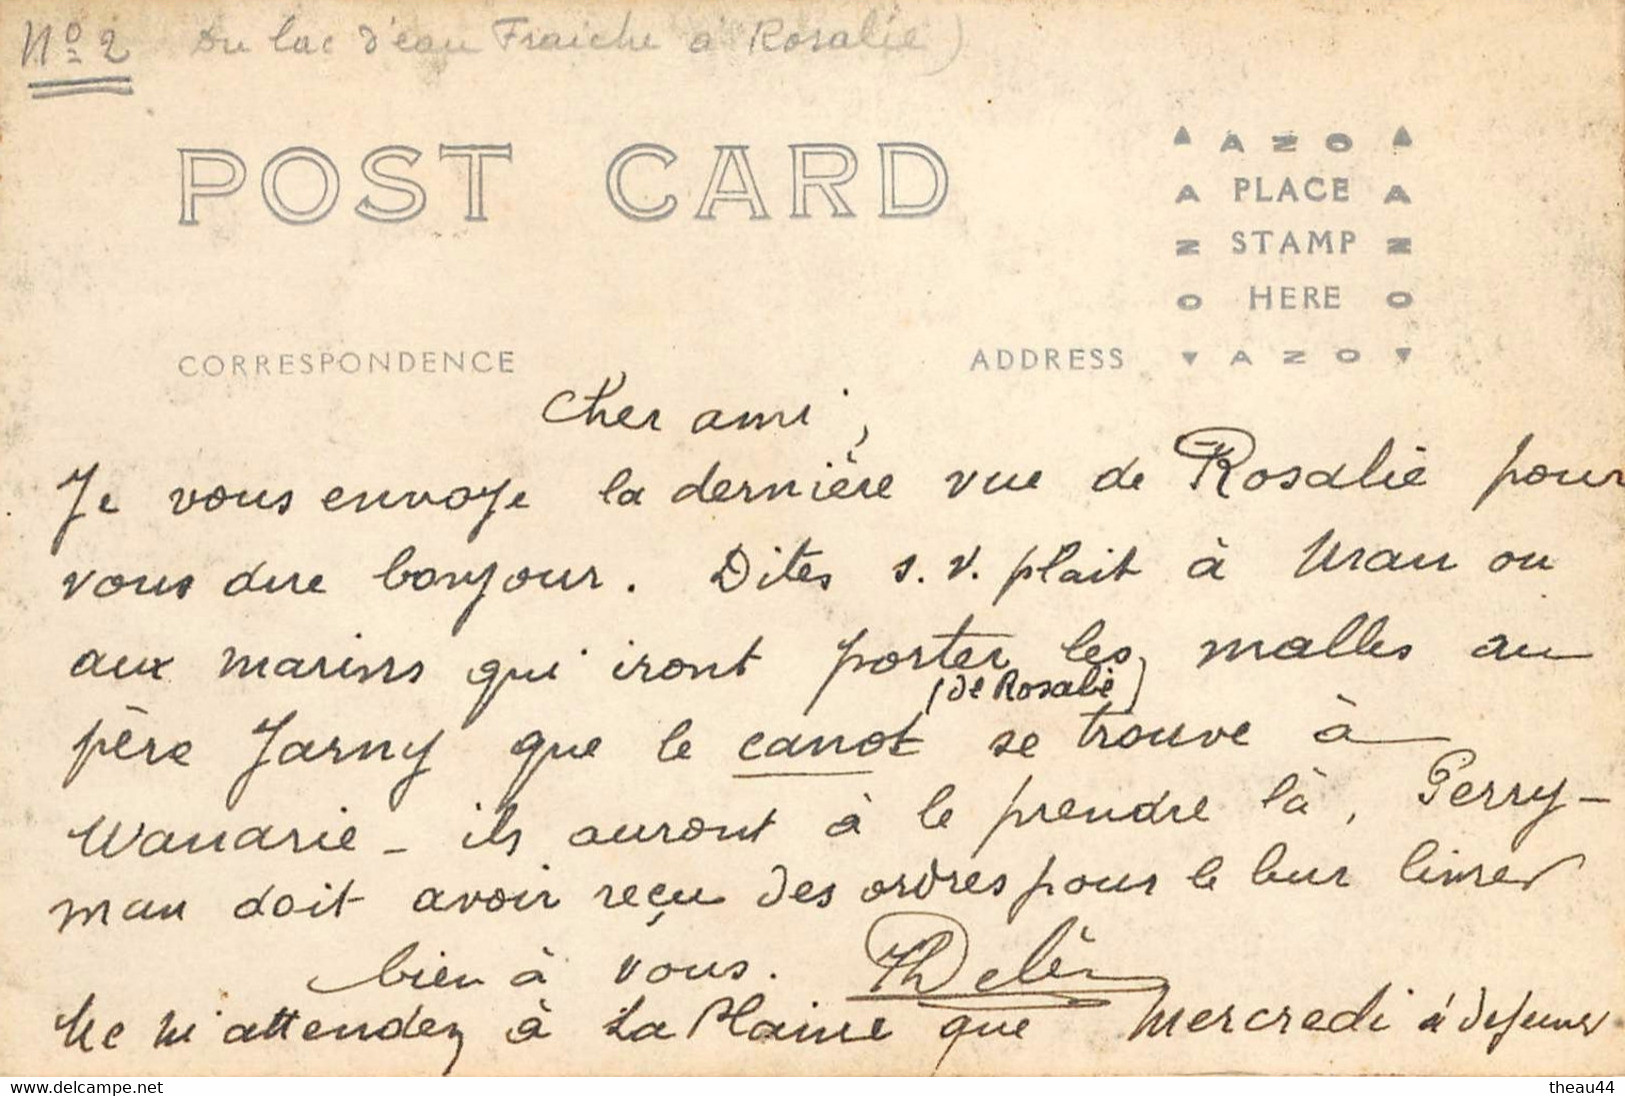 No 2 Du lac d'eau Fraiche a Rosalie)
POST CARD
AZO
PLACE
STAMP
HERE
AZO
CORRESPONDENCE
ADDRESS
Cher ami,
Je vous envoye la dernière vue de Rosalie pour
vous dire bonjour. Dites s.v. plait à Urau ou
aux marins qui iront porter les malles au
(de Rosalie)
père Jarny que le canot se trouve à
Wanarie - ils auront à le prendre là. Perry-
man doit avoir reçu des ordres pour le leur livrer
bien à vous.
Ne m'attendez à La Plaine que Mercredi à dejeuner
www.delcampe.net
theau44